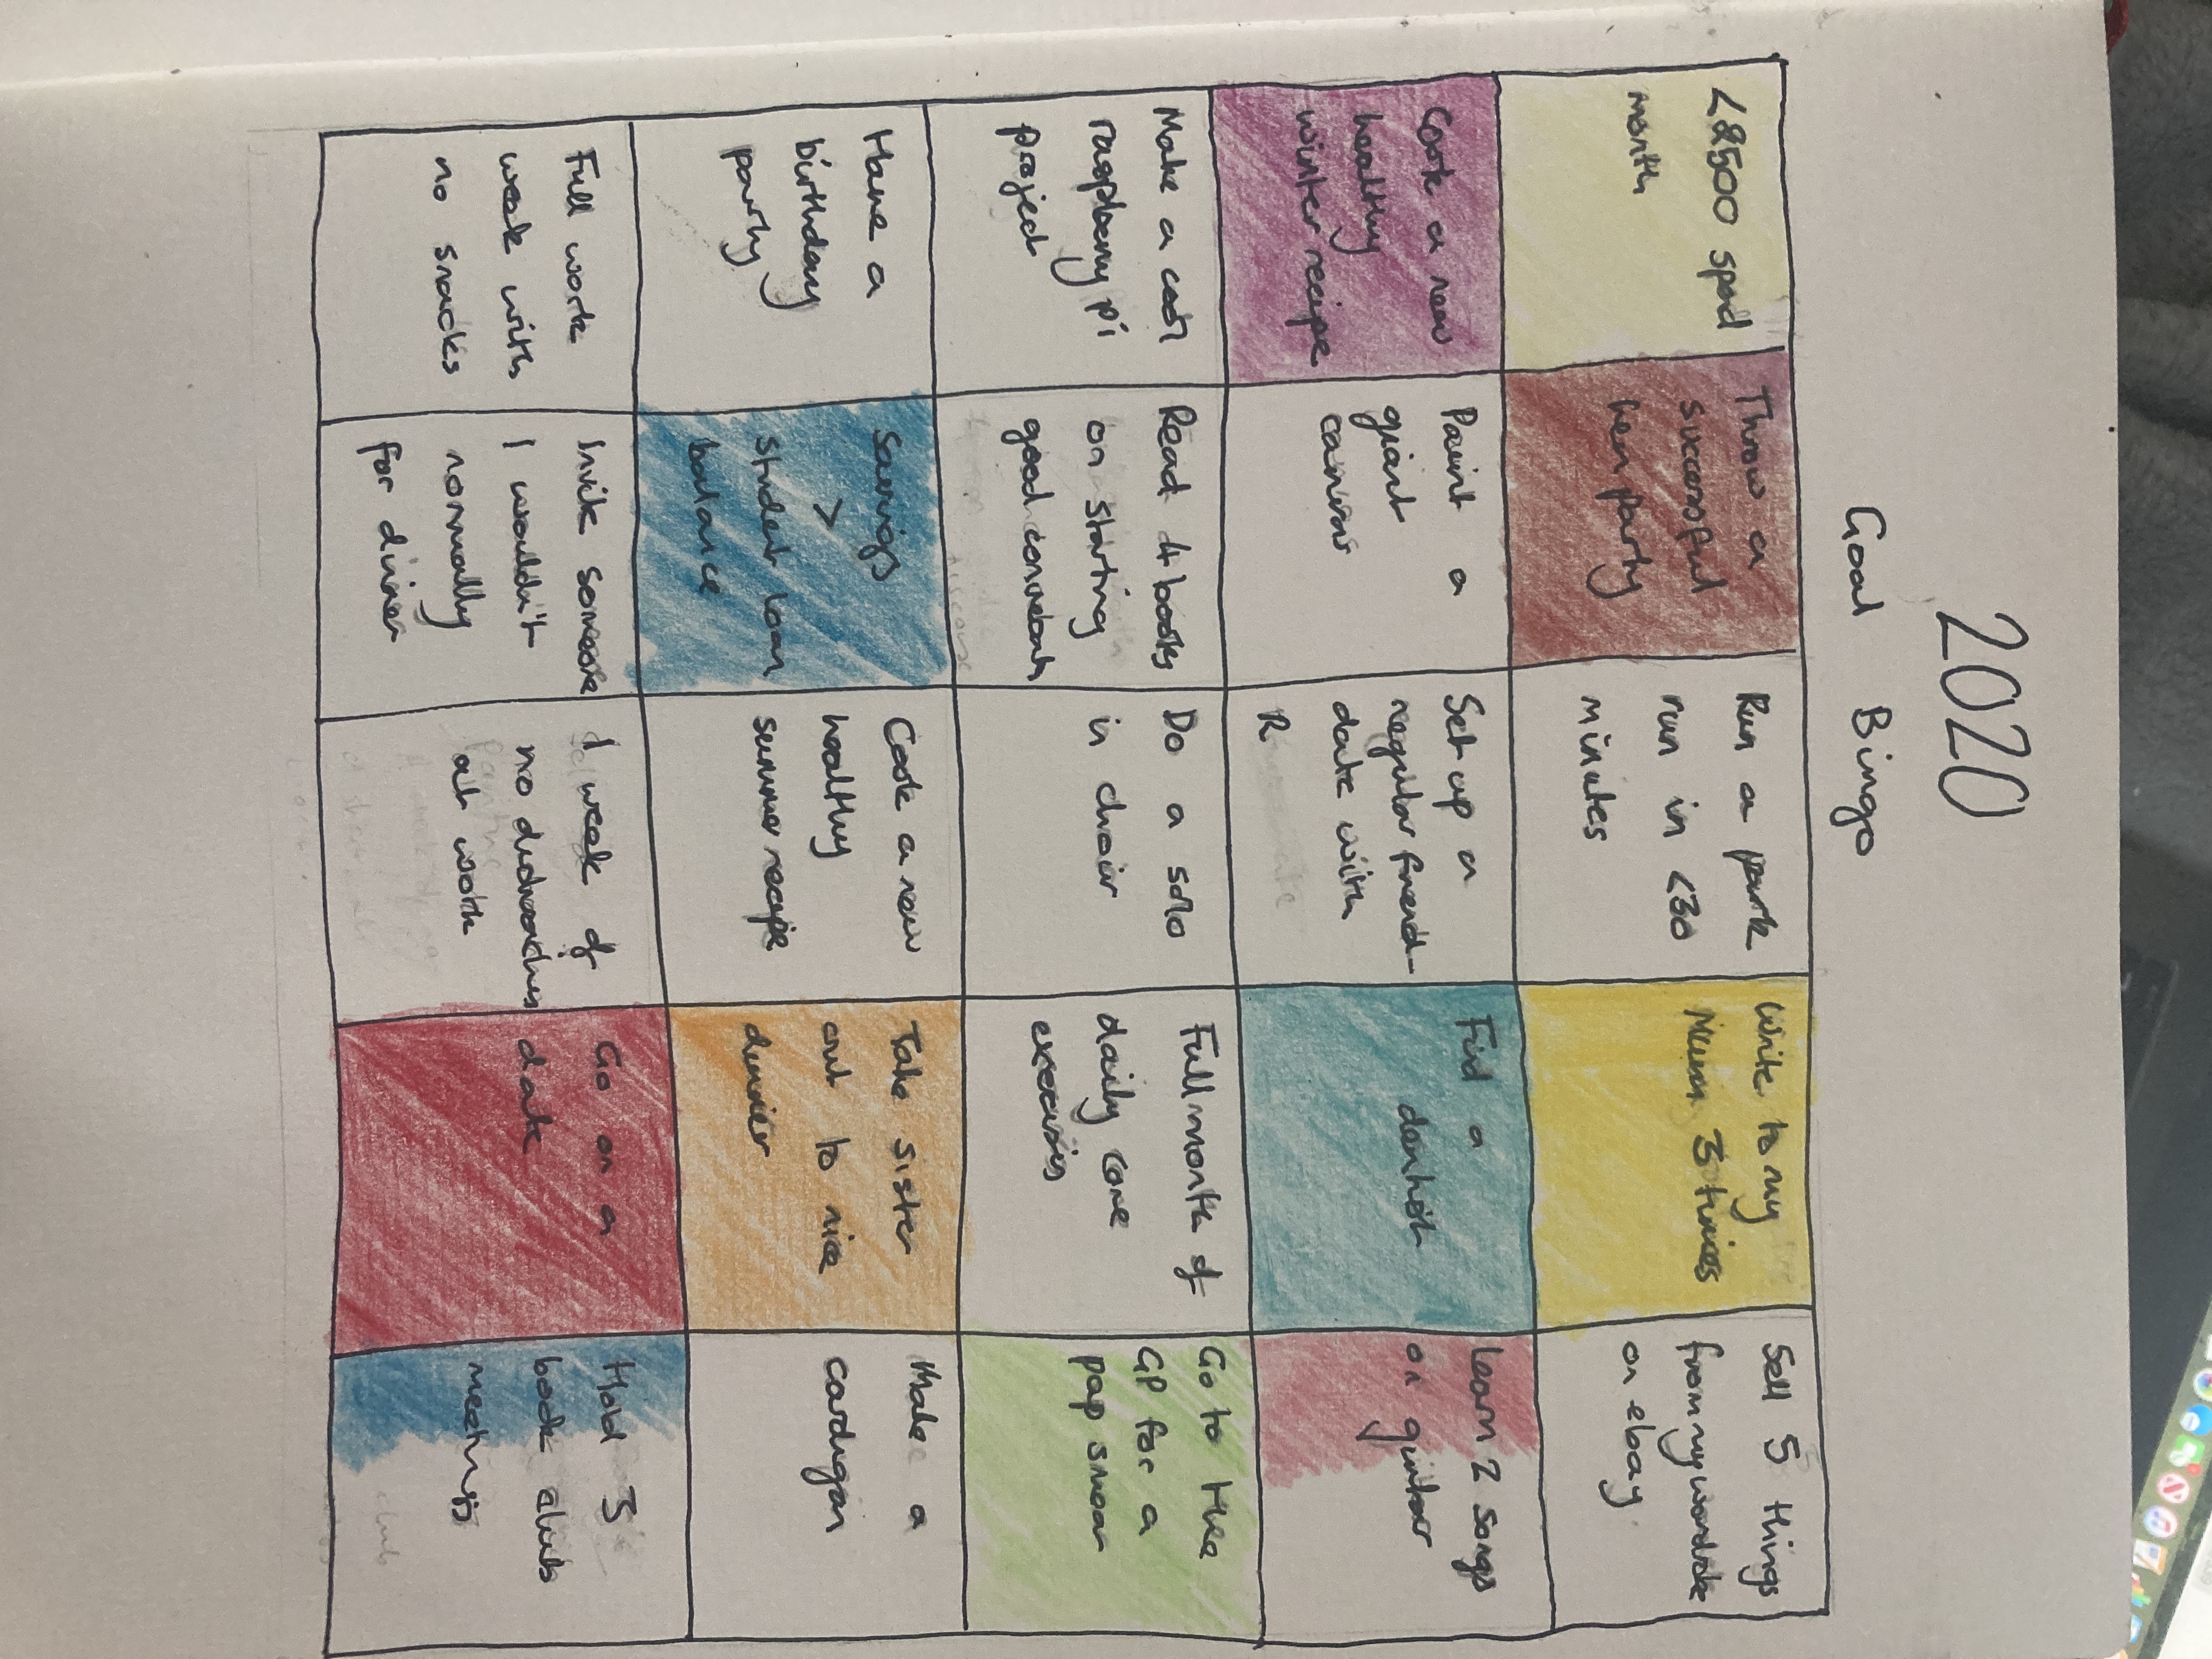 2020
Goal Bingo
<£500 spend
month
Throw a
successful
hen party
Run a park
run in <30
minutes
Write to my
Mum 3 times
Sell 5 things
from my wardrobe
on ebay.
Cook a new
healthy
winter recipe
Paint a
giant
canvas
Set up a
regular friend-
date with
R
Find a
dentist
Learn 2 songs
on guitar
Make a cool
raspberry pi
project
Read 4 books
on starting
good
Do a solo
in choir
Full month of
daily core
exercises
Go to the
GP for a
pap smear
Have a
birthday
party
Savings
>
student loan
balance
Cook a new
healthy
summer recipe
Take sister
out to nice
dinner
Make a
cardigan
Full work
week with
no snacks
Invite someone
I wouldn't
normally
for dinner
1 week of
no
at work
Go on a
date
Hold 3
book club
meetings